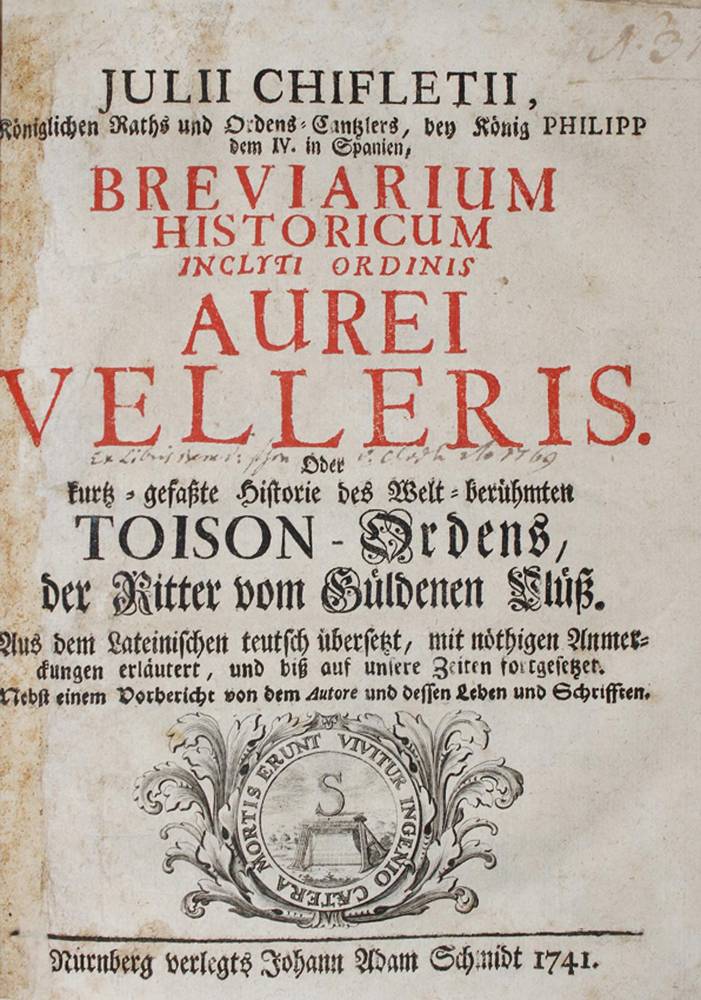 N. 3
JULII CHIFLETII,
Königlichen Raths und Ordens-Cantzlers, bey König PHILIPP
dem IV. in Spanien,
BREVIARIUM
HISTORICUM
INCLYTI ORDINIS
AUREI
VELLERIS.
Oder
kurtz-gefaßte Historie des Welt-berühmten
TOISON-Ordens,
der Ritter vom Güldenen Vlüß.
Aus dem Lateinischen teutsch übersetzt, mit nöthigen Anmer-
ckungen erläutert, und biß auf unsere Zeiten fortgesetzet.
Nebst einem Vorbericht von dem Autore und dessen Leben und Schrifften.
VIVITUR INGENIO CÆTERA MORTIS ERUNT
S
Nürnberg verlegts Johann Adam Schmidt 1741.